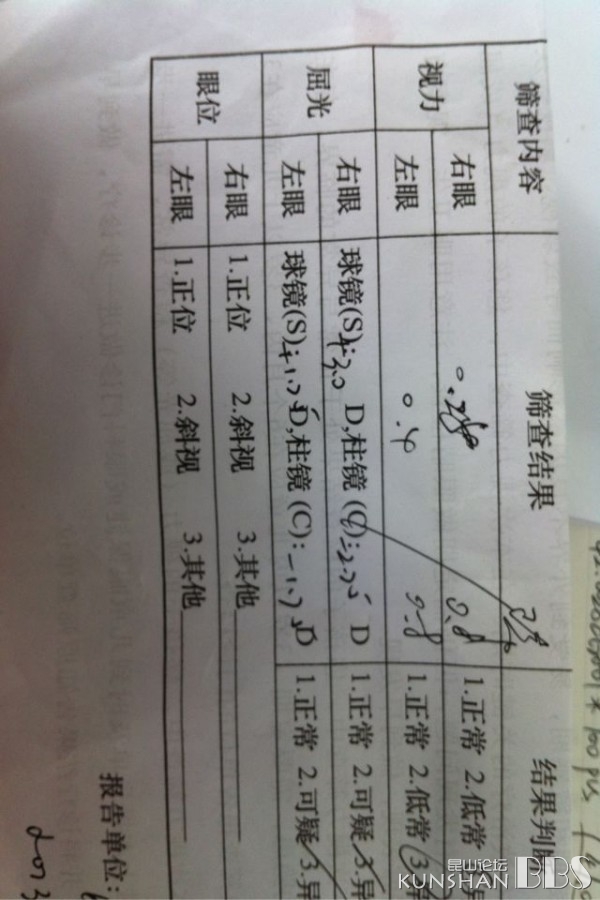 筛查内容 筛查结果 结果判
视力 右眼 0.8 1.正常 2.低常
左眼 0.4 0.8 1.正常 2.低常 3
屈光 右眼 球镜(S): +3.0 D,柱镜(C): D 1.正常 2.可疑 3.异
左眼 球镜(S): D,柱镜(C): D 1.正常 2.可疑 3.异
眼位 右眼 1.正位 2.斜视 3.其他
左眼 1.正位 2.斜视 3.其他
报告单位:
2013
昆山论坛
KUNSHAN BBS